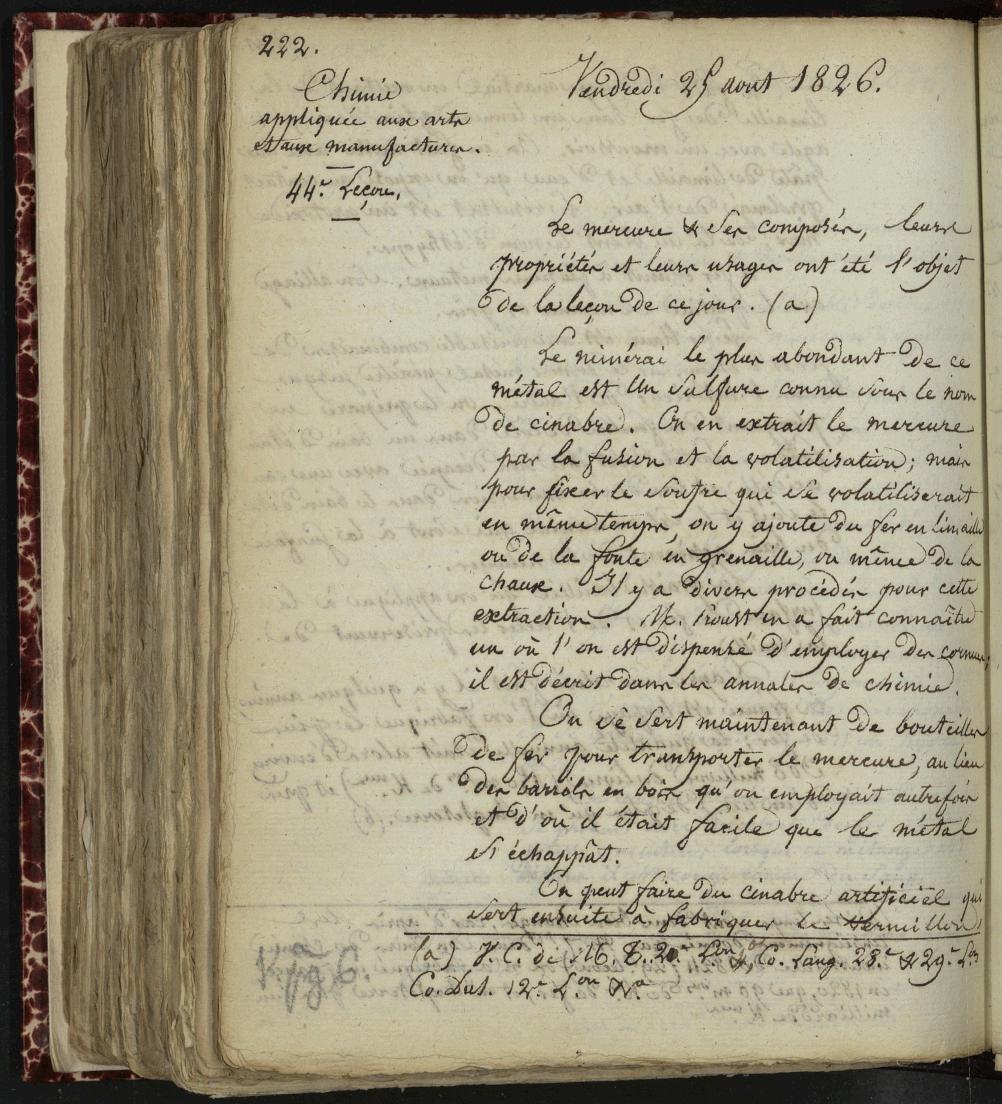 222.
Vendredi 25 aout 1826.
Chimie
appliquée aux arts
et aux manufactures.
44e. Leçon.
Le mercure & ses composés, leurs
propriétés et leurs usages ont été l'objet
de la leçon de ce jour. (a)
Le minérai le plus abondant de ce
métal est un sulfure connu sous le nom
de cinabre. On en extrait le mercure
par la fusion et la volatilisation; mais
pour fixer le soufre qui se volatiliserait
en même temps, on y ajoute du fer en limaille
ou de la fonte en grenaille, ou même de la
chaux. Il y a divers procédés pour cette
extraction. M. Proust en a fait connaître
un où l'on est dispensé d'employer des cornues;
il est décrit dans les annales de chimie.
On se sert maintenant de bouteilles
de fer pour transporter le mercure, au lieu
des barrils en bois qu'on employait autrefois
et d'où il était facile que le métal
s'échappât.
On peut faire du cinabre artificiel qui
sert ensuite à fabriquer le vermillon.
(a) V. C. de M. T. 20e Lon, Co. Laug. 28.e & 29.e Lon
Co. Dul. 12.e Lon &a